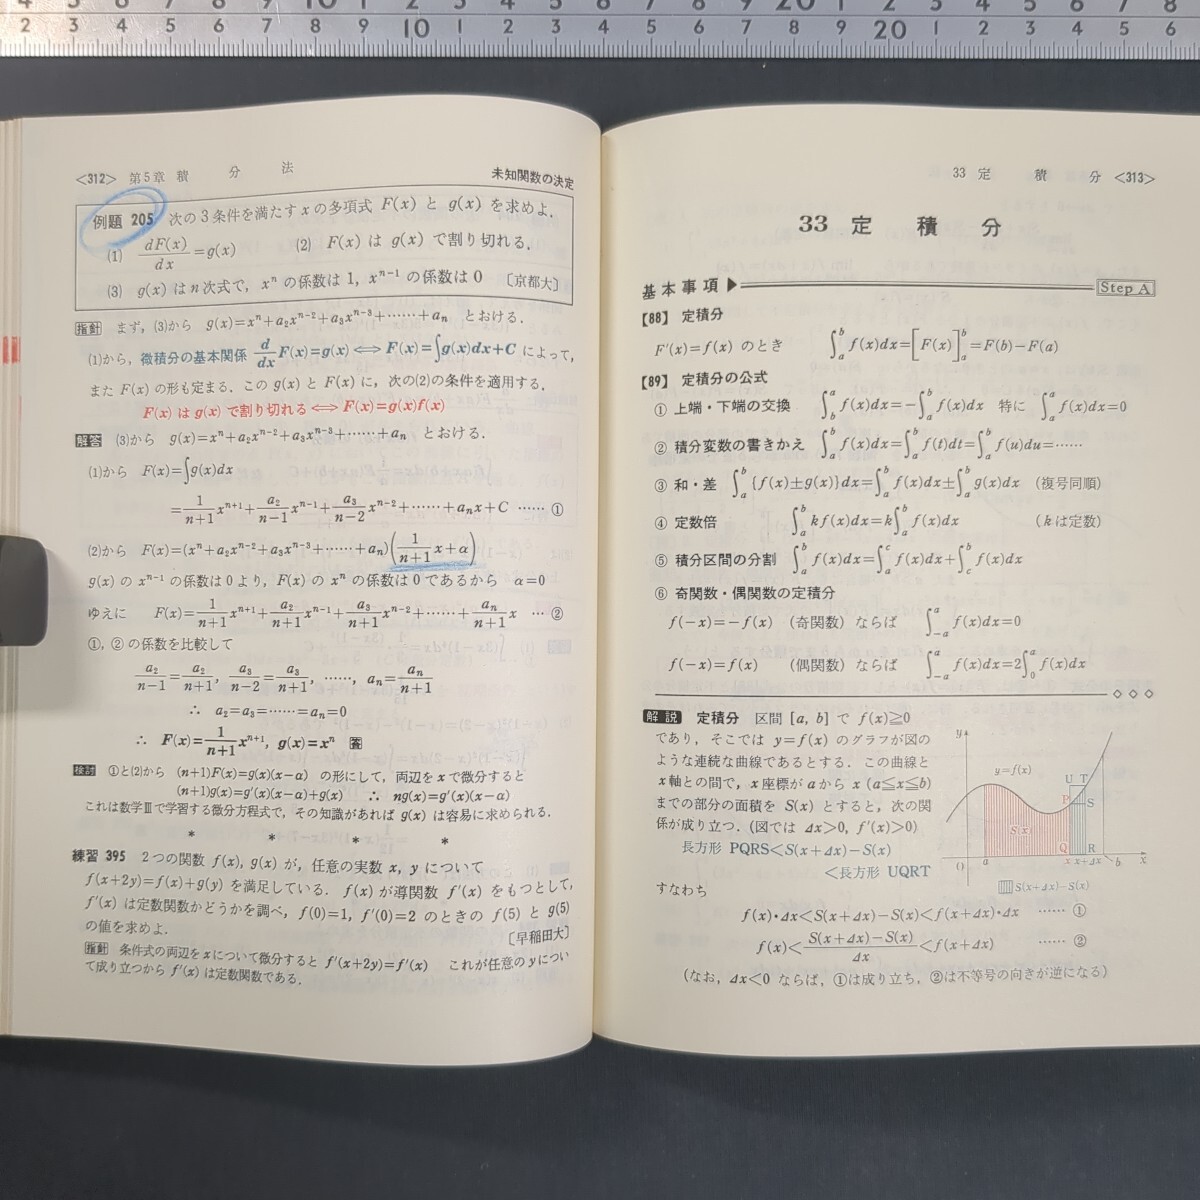 <312> 第5章 積 分 法 未知関数の決定
例題 205 次の3条件を満たす x の多項式 F(x) と g(x) を求めよ.
(1) dF(x)/dx=g(x) (2) F(x) は g(x) で割り切れる.
(3) g(x) は n 次式で, xⁿ の係数は 1, xⁿ⁻¹ の係数は 0 〔京都大〕
指針 まず, (3)から g(x)=xⁿ+a₂xⁿ⁻²+a₃xⁿ⁻³+……+aₙ とおける.
(1)から, 微積分の基本関係 d/dx F(x)=g(x) ⟺ F(x)=∫g(x)dx+C によって,
また F(x) の形も定まる. この g(x) と F(x) に, 次の(2)の条件を適用する.
F(x) は g(x) で割り切れる ⟺ F(x)=g(x)f(x)
解答 (3)から g(x)=xⁿ+a₂xⁿ⁻²+a₃xⁿ⁻³+……+aₙ とおける.
(1)から F(x)=∫g(x)dx
=1/(n+1) xⁿ⁺¹+a₂/(n−1) xⁿ⁻¹+a₃/(n−2) xⁿ⁻²+……+aₙx+C …… ①
(2)から F(x)=(xⁿ+a₂xⁿ⁻²+a₃xⁿ⁻³+……+aₙ)(1/(n+1) x+α)
g(x) の xⁿ⁻¹ の係数は0より, F(x) の xⁿ の係数は0であるから α=0
ゆえに F(x)=1/(n+1) xⁿ⁺¹+a₂/(n+1) xⁿ⁻¹+a₃/(n+1) xⁿ⁻²+……+aₙ/(n+1) x … ②
①, ② の係数を比較して
a₂/(n−1)=a₂/(n+1), a₃/(n−2)=a₃/(n+1), ……, aₙ=aₙ/(n+1)
∴ a₂=a₃=……=aₙ=0
∴ F(x)=1/(n+1) xⁿ⁺¹, g(x)=xⁿ 答
検討 ①と(2)から (n+1)F(x)=g(x)(x−α) の形にして, 両辺を x で微分すると
(n+1)g(x)=g′(x)(x−α)+g(x) ∴ ng(x)=g′(x)(x−α)
これは数学Ⅲで学習する微分方程式で, その知識があれば g(x) は容易に求められる.
* * * *
練習 395 2つの関数 f(x), g(x) が, 任意の実数 x, y について
f(x+2y)=f(x)+g(y) を満足している. f(x) が導関数 f′(x) をもつとして,
f′(x) は定数関数かどうかを調べ, f(0)=1, f′(0)=2 のときの f(5) と g(5)
の値を求めよ. 〔早稲田大〕
指針 条件式の両辺を x について微分すると f′(x+2y)=f′(x) これが任意の y につい
て成り立つから f′(x) は定数関数である.
33 定 積 分 <313>
33 定 積 分
基本事項 ▶ Step A
【88】 定積分
F′(x)=f(x) のとき ∫ₐᵇ f(x)dx=[F(x)]ₐᵇ=F(b)−F(a)
【89】 定積分の公式
① 上端・下端の交換 ∫_b^a f(x)dx=−∫_a^b f(x)dx 特に ∫_a^a f(x)dx=0
② 積分変数の書きかえ ∫_a^b f(x)dx=∫_a^b f(t)dt=∫_a^b f(u)du=……
③ 和・差 ∫_a^b {f(x)±g(x)}dx=∫_a^b f(x)dx±∫_a^b g(x)dx (複号同順)
④ 定数倍 ∫_a^b kf(x)dx=k∫_a^b f(x)dx (k は定数)
⑤ 積分区間の分割 ∫_a^b f(x)dx=∫_a^c f(x)dx+∫_c^b f(x)dx
⑥ 奇関数・偶関数の定積分
f(−x)=−f(x) (奇関数) ならば ∫_{−a}^a f(x)dx=0
f(−x)=f(x) (偶関数) ならば ∫_{−a}^a f(x)dx=2∫_0^a f(x)dx
◇◇◇
解説 定積分 区間 [a, b] で f(x)≧0
であり, そこでは y=f(x) のグラフが図の
ような連続な曲線であるとする. この曲線と
x 軸との間で, x 座標が a から x (a≦x≦b)
までの部分の面積を S(x) とすると, 次の関
係が成り立つ. (図では Δx>0, f′(x)>0)
長方形 PQRS<S(x+Δx)−S(x)
<長方形 UQRT
すなわち
y
y=f(x)
U T
P S
S(x)
Q R
O a x x+Δx b x
S(x+Δx)−S(x)
f(x)·Δx<S(x+Δx)−S(x)<f(x+Δx)·Δx …… ①
f(x)<(S(x+Δx)−S(x))/Δx<f(x+Δx) …… ②
(なお, Δx<0 ならば, ①は成り立ち, ②は不等号の向きが逆になる)